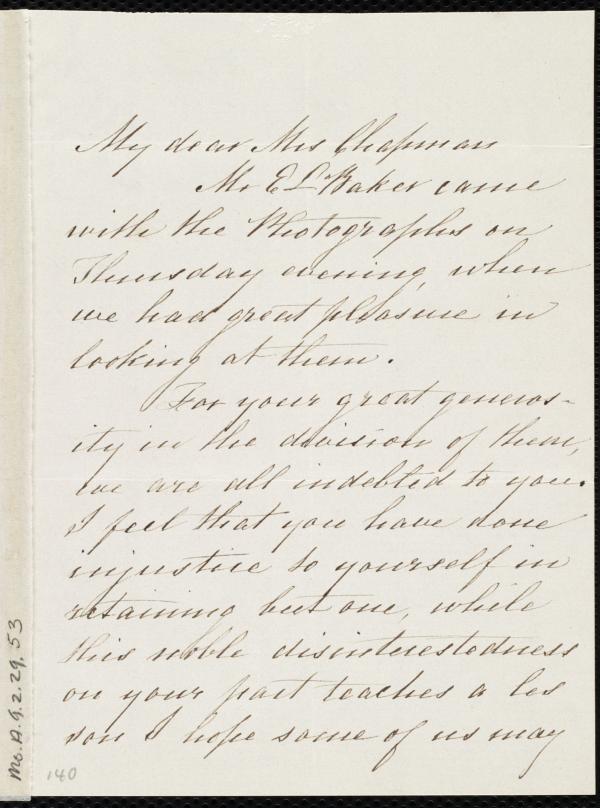 My dear Mrs Chapman
Mr E L Baker came
with the Photographs on
Thursday evening, when
we had great pleasure in
looking at them.
For your great generos-
ity in the division of them,
we are all indebted to you.
I feel that you have done
injustice to yourself in
retaining but one, while
this noble disinterestedness
on your part teaches a les
son I hope some of us may
140
Ms. A. 9. 2. 29. 53